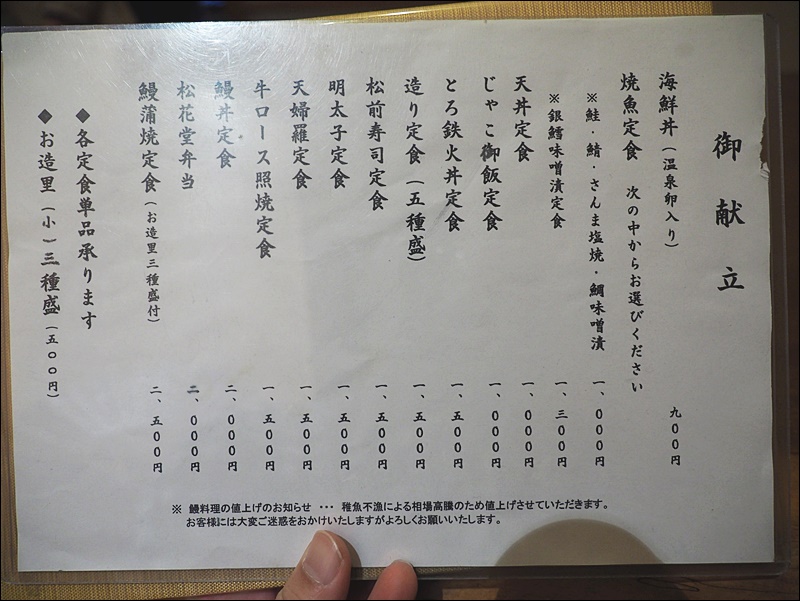 御献立
海鮮丼（温泉卵入り） 九〇〇円
焼魚定食 次の中からお選びください
※鮭・鯖・さんま塩焼・鯛味噌漬 一、〇〇〇円
※銀鱈味噌漬定食 一、三〇〇円
天丼定食 一、〇〇〇円
じゃこ御飯定食 一、〇〇〇円
とろ鉄火丼定食 一、五〇〇円
造り定食（五種盛） 一、五〇〇円
松前寿司定食 一、五〇〇円
明太子定食 一、五〇〇円
天婦羅定食 一、五〇〇円
牛ロース照焼定食 一、五〇〇円
鰻丼定食 二、〇〇〇円
松花堂弁当 二、〇〇〇円
鰻蒲焼定食（お造里三種盛付） 二、五〇〇円
◆各定食単品承ります
◆お造里（小）三種盛（五〇〇円）
※ 鰻料理の値上げのお知らせ ・・・ 稚魚不漁による相場高騰のため値上げさせていただきます。
お客様には大変ご迷惑をおかけいたしますがよろしくお願いいたします。